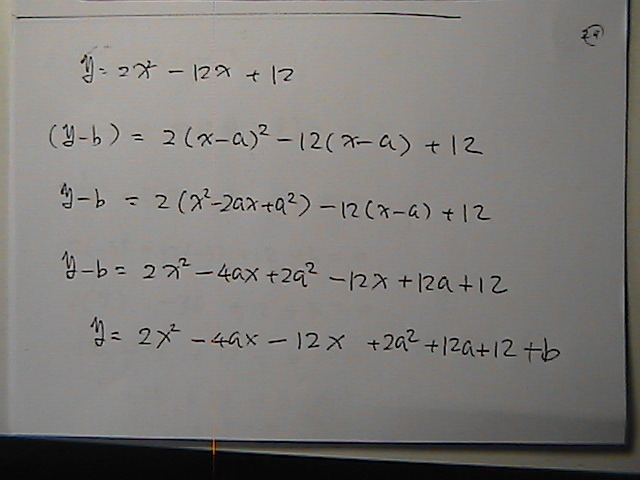 y = 2x² - 12x + 12
(y-b) = 2(x-a)² - 12(x-a) + 12
y-b = 2(x²-2ax+a²) - 12(x-a) + 12
y-b = 2x² - 4ax + 2a² - 12x + 12a + 12
y = 2x² - 4ax - 12x + 2a² + 12a + 12 + b